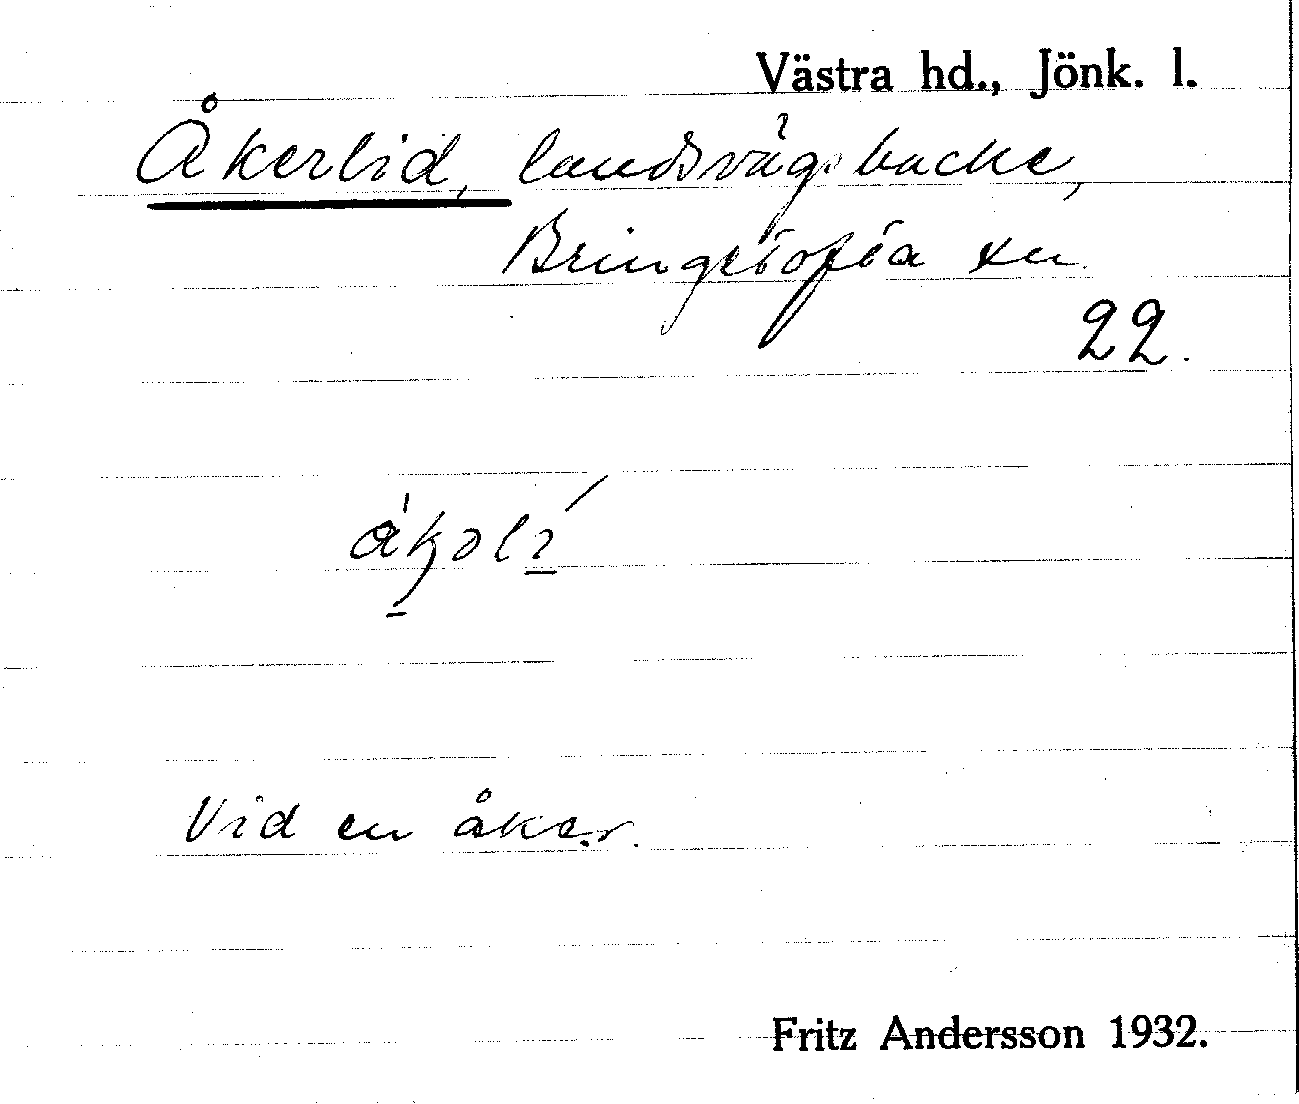 Västra hd., Jönk. l.
Åkerlid, landsvägsbacke,
Bringetofta sn
22.
Vid en åker.
Fritz Andersson 1932.